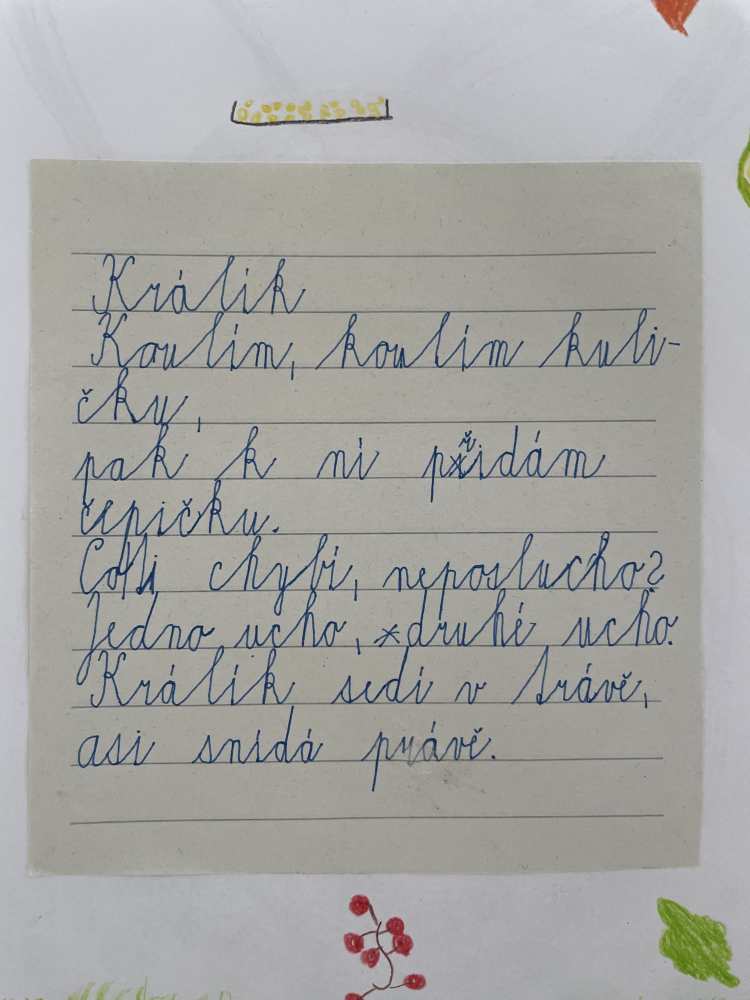 Králík
Koulím, koulím kuli-
čku,
pak k ni přidám
čepičku.
Co ti chybí, neposlucho?
Jedno ucho, druhé ucho.
Králík sedí v trávě,
asi snídá právě.